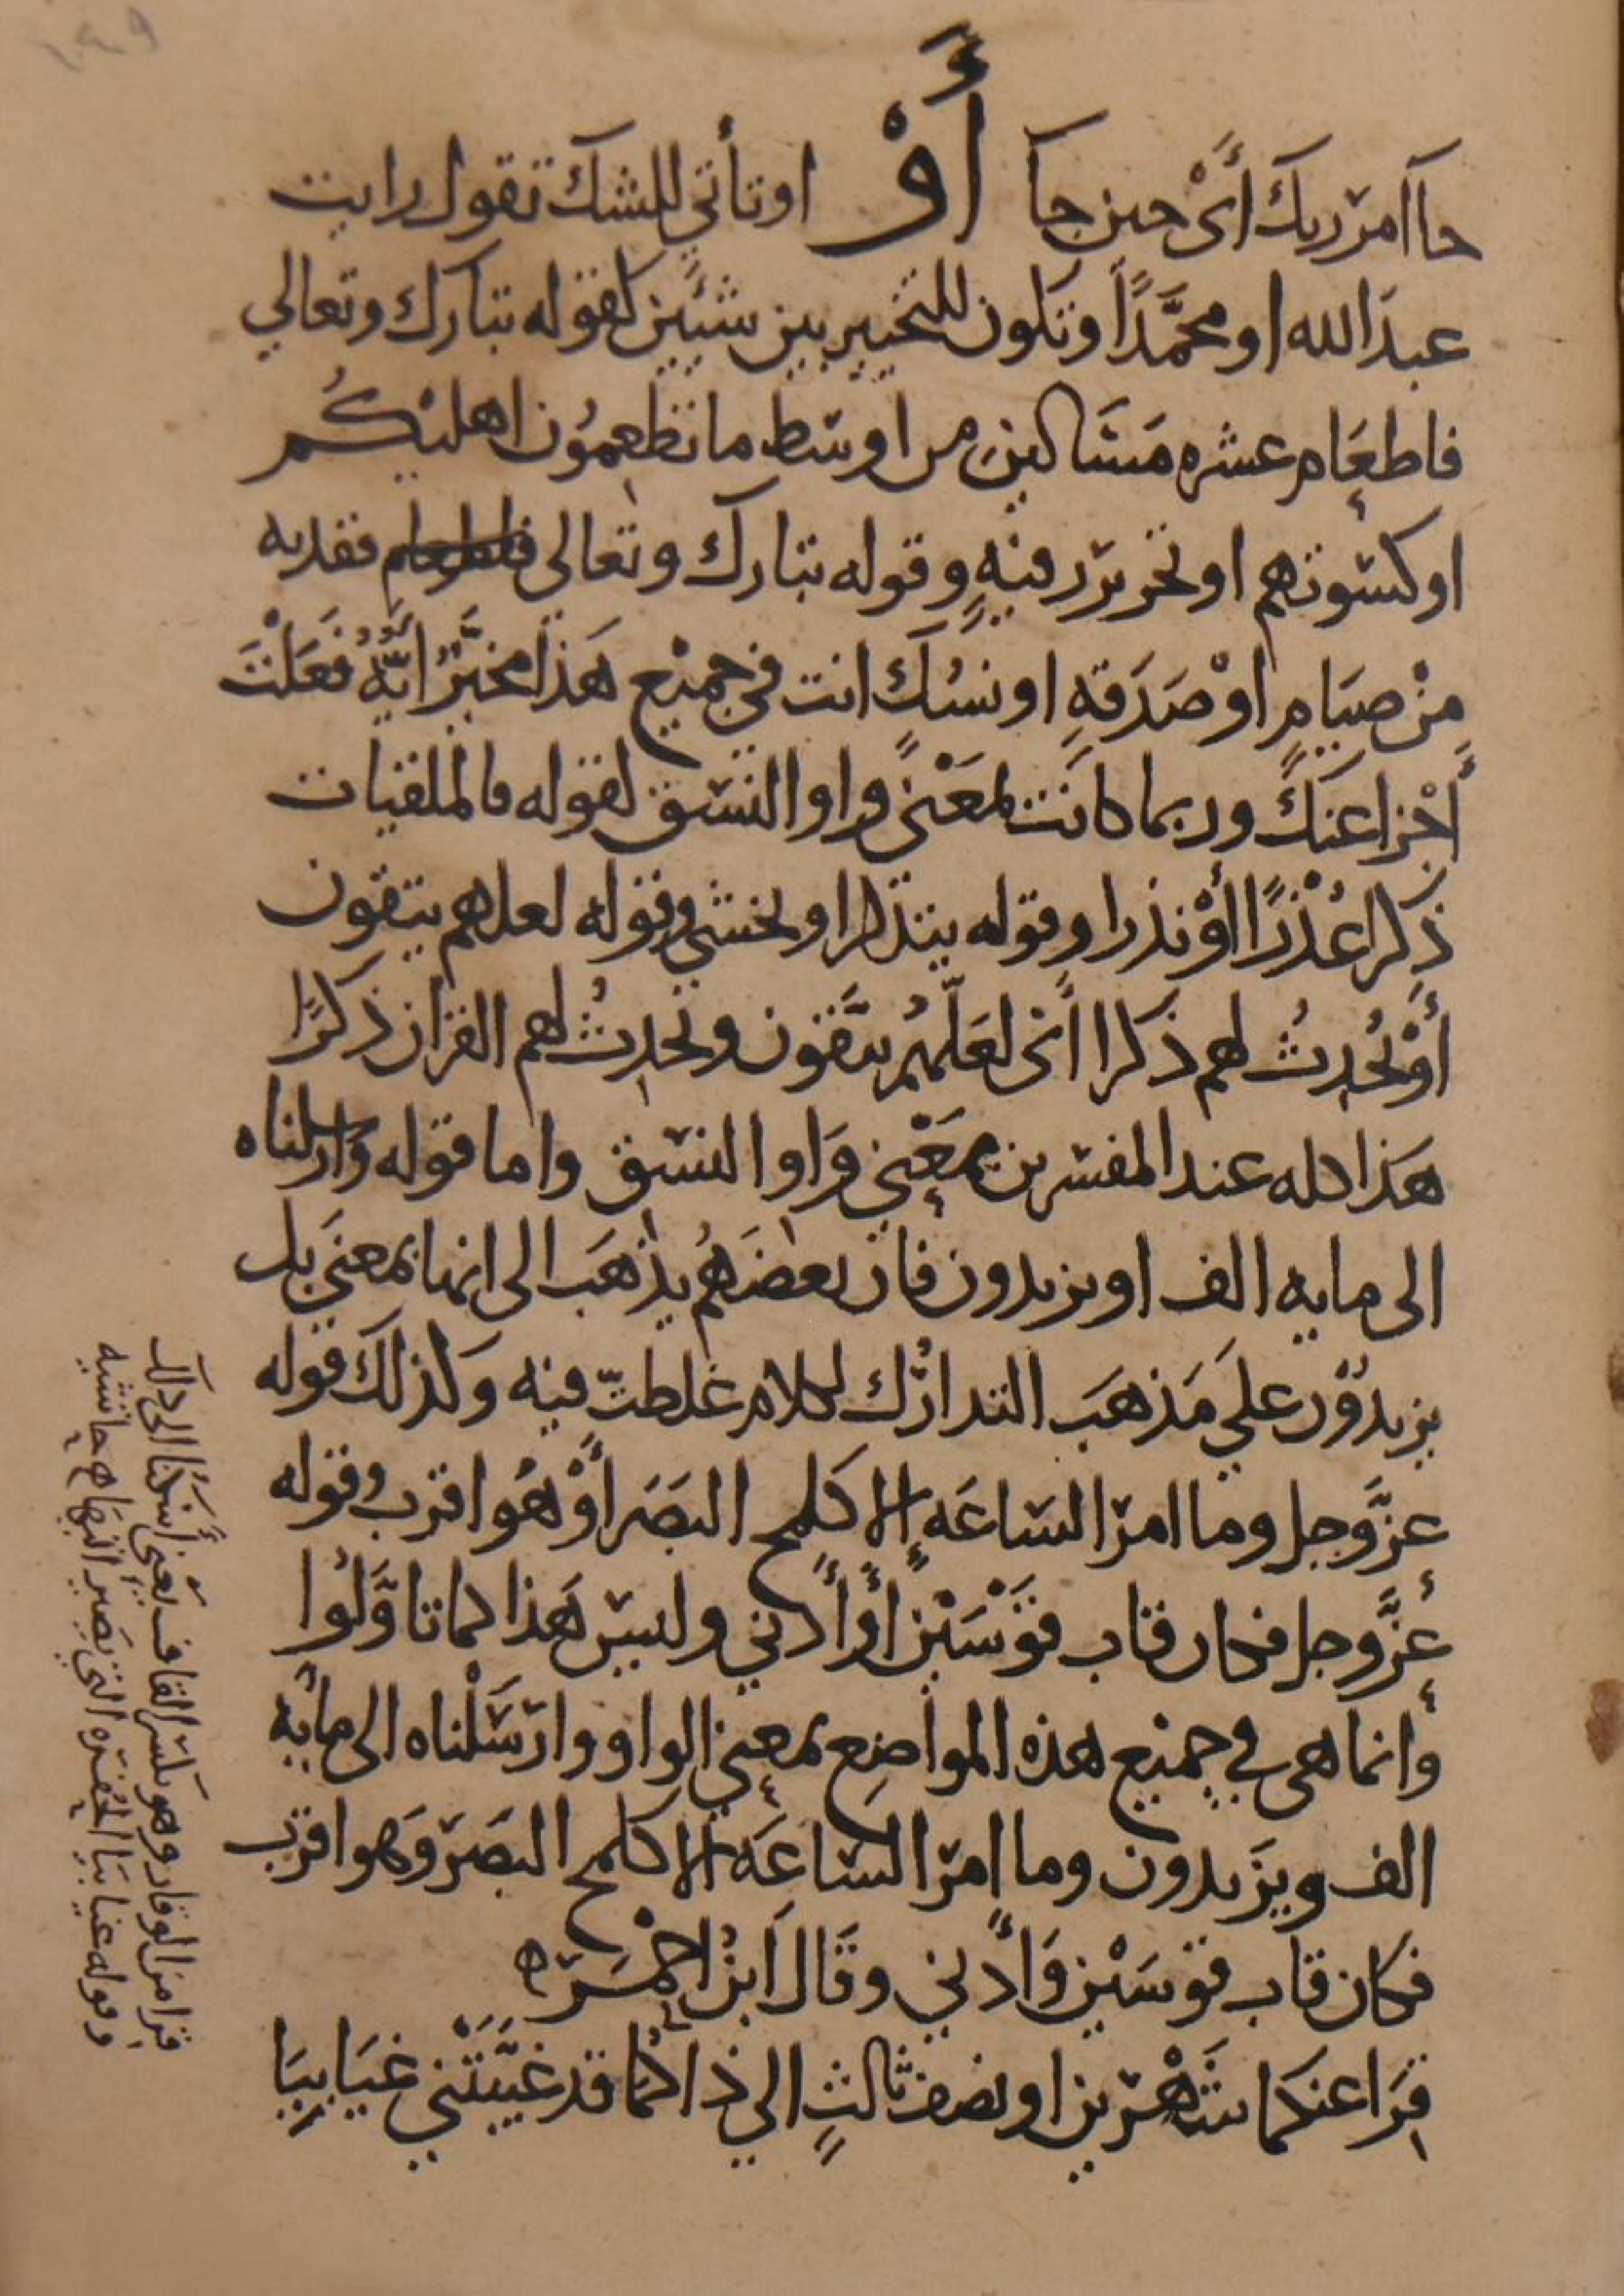 حآ امر ربك أَىْ حين جآ أَوْ او تأتي للشك تقول رايت
عبدَالله او محمَّدًا وتكون للتخيير بين شيئَين كقوله تبارك وتعالي
فاطعَام عشره مَسَاكين من اوسَط ما تطعِموُن اهليكُم
او كسوتهم او تحرير رقبهٍ وقوله تبارك وتعالى ففديه
مِنْ صيَامٍ اوْ صَدَقهٍ او نسُكٍ انت في جميْع هَذا مخيَّرٌ ايَّهُ فعَلْتَ
أجْزا عنكَ وربما كانَت بمَعْنى واو النسَق كقوله فالملقيات
ذِكرا عُذْرًا أوْ نذرا وقوله يتذكر او يخشى وقوله لعلهم يتقون
أَوْ يُحْدِثُ لهم ذكرا أَىْ لعَلّهُم يتَّقون ويُحدِثُ لهم القران ذكرًا
هَذا كله عند المفسرين بمَعْنى وَاو النسَق واما قوله وَارسلناه
الى مايه الف او يزيدون فان بعضَهُم يذهَب الى انها بمعنَى بل
يزيدُوْن علي مَذهَب التدارُك لكلام غلطتّ فيه وكذلك قوله
عزَّوجل وما امر السَاعَه إلا كلمح البصَر أوْ هُو اقرب وقوله
عزَّوجل فكان قاب قوْسَيْن أوْ أدني وليسَ هَذا كما تاوَّلُوا
وأنما هى في جميْع هذه المواضِع بمعنى الواو وارْسَلْناه الى مأيه
الف ويزَيدون وما امر السَاعَه الا كلمح البصَر وَهو اقرب
فكان قاب قوسَيْن وَأدني وقَال ابنُ احمَرَ ه
قِرَا عنكما شَهْرين او نصف ثالثٍ الي ذاكمُا قد غيَّبَتْني غيَابيَا
قرا من الوقار وهو بكسر القاف يعني اُسكُنا الي ذلك
وقوله غيابيَا الحُفره التي تصير اليهَا ح حاشيه